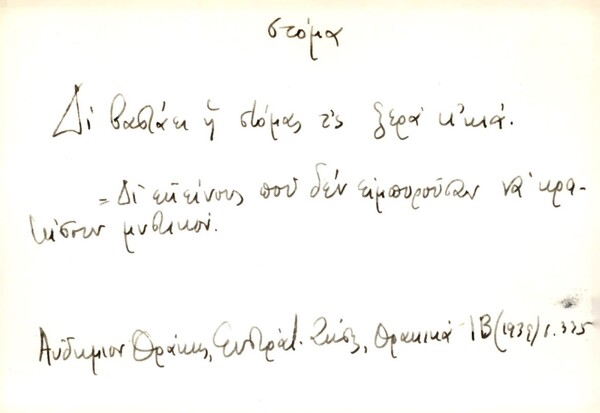 στόμα
Δὶ βαστάει ἡ στόμας τ'ς ξερὰ κ'κιά.
= Δι' ἐκείνους ποὺ δὲν εἰμποροῦσαν νὰ κρα-
τήσουν μυστικόν.
Αὐδήμιον Θράκης, Εὐστράτ. Ζήσ, Θρακικὰ ΙΒ (1939) σ. 335